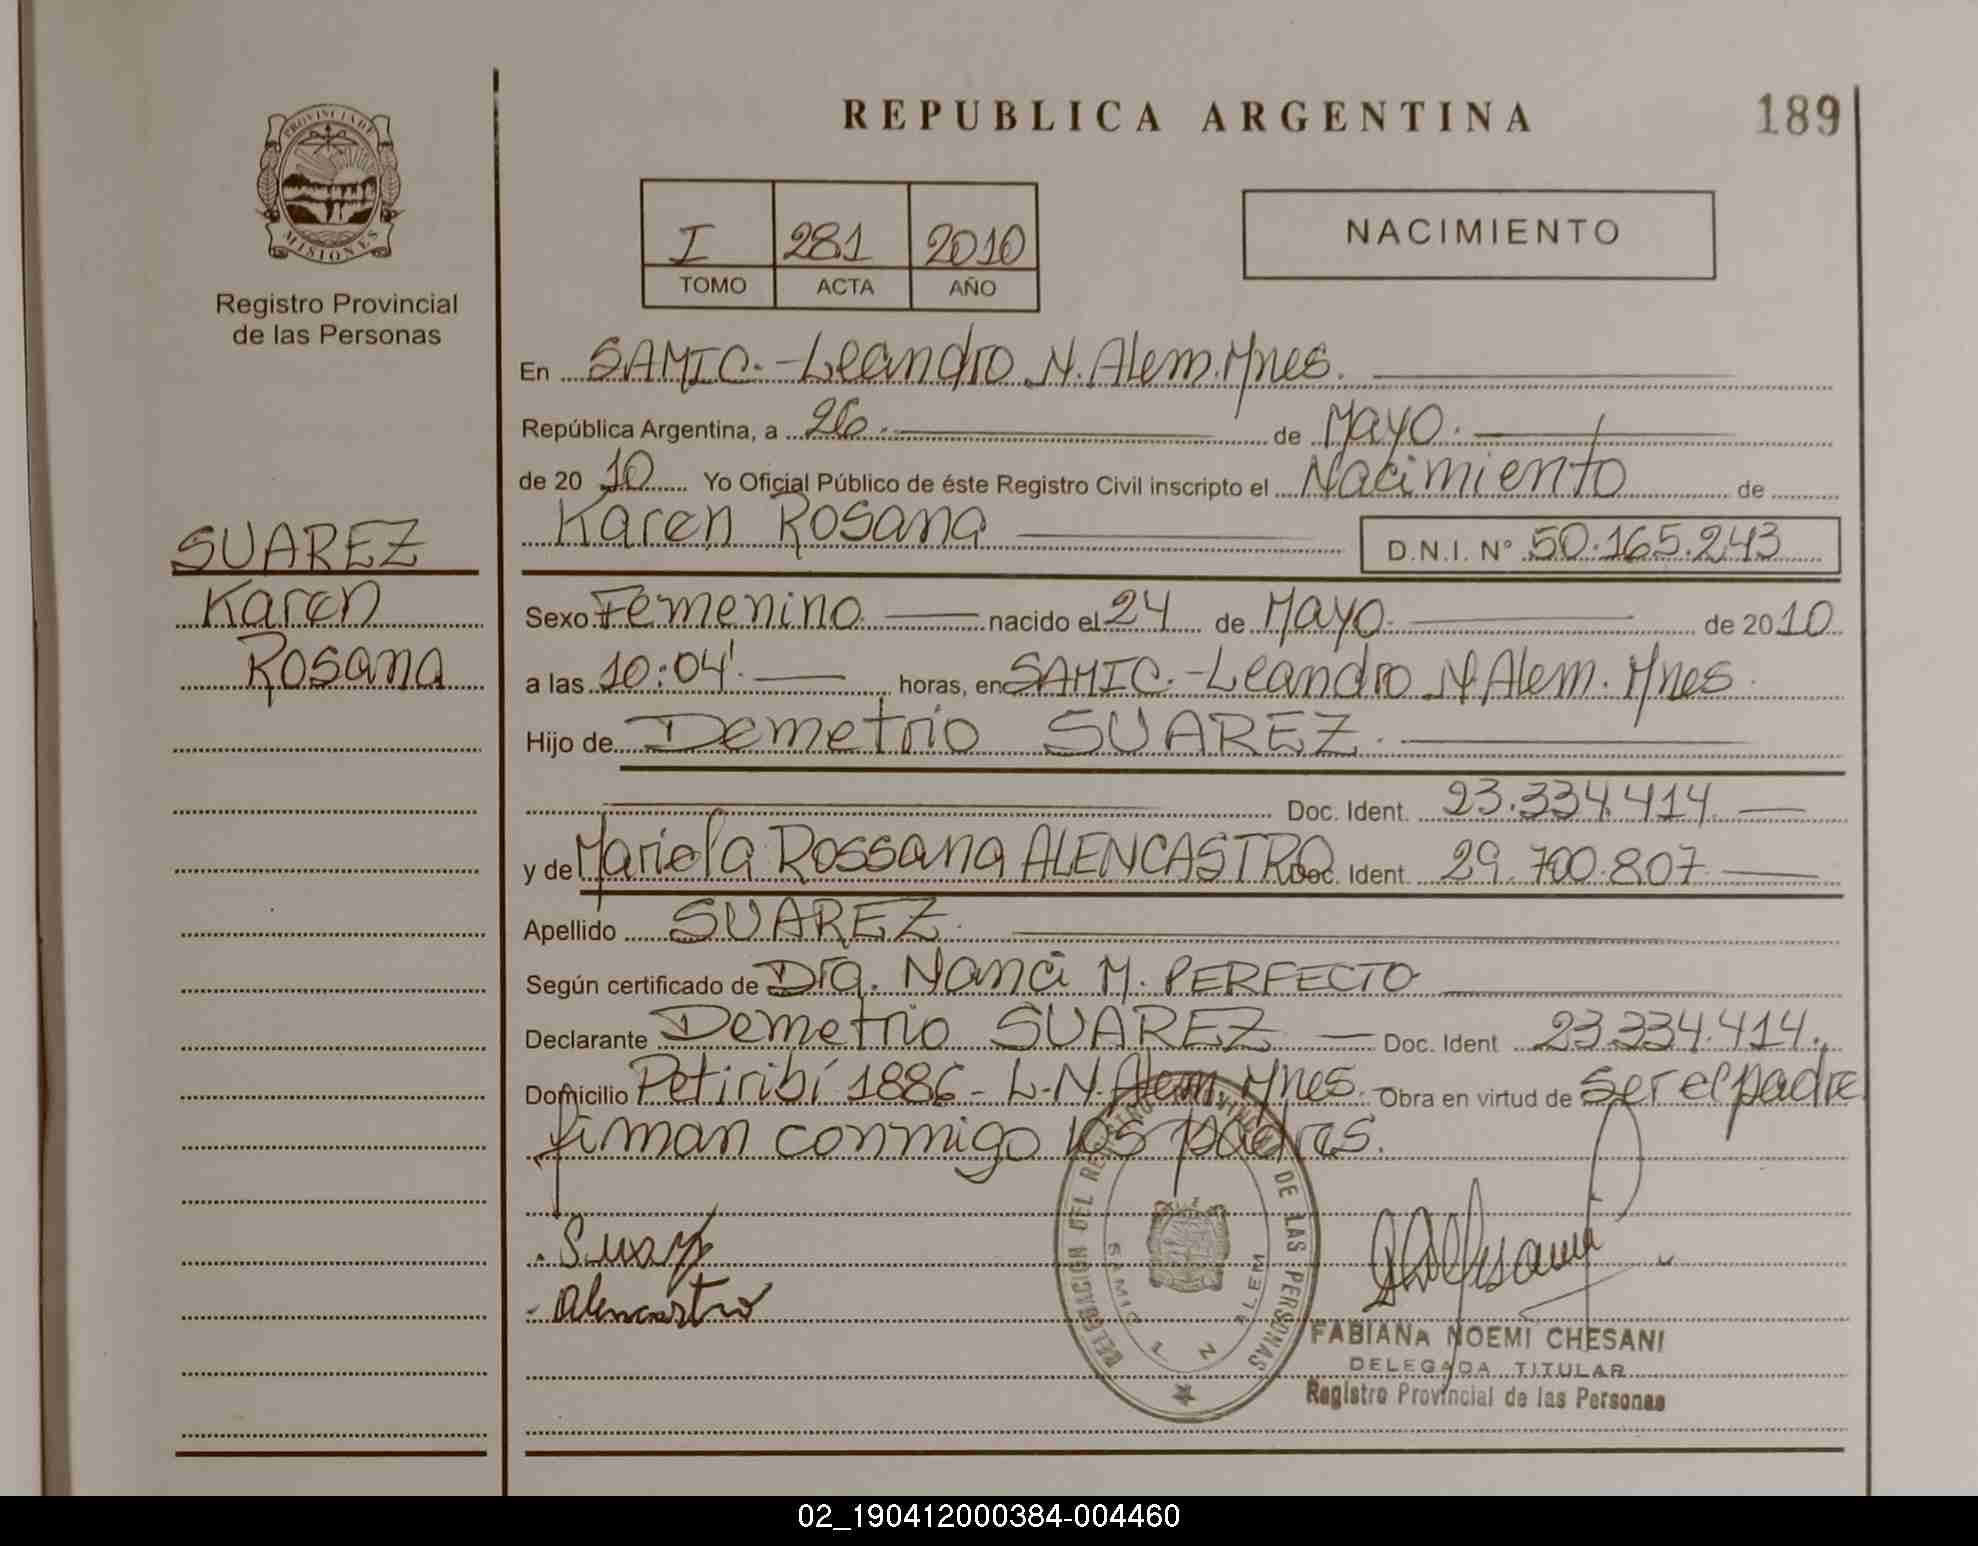 REPUBLICA ARGENTINA
189
PROVINCIA DE
MISIONES
Registro Provincial
de las Personas
I 281 2010
TOMO ACTA AÑO
NACIMIENTO
En SAMIC.-Leandro N. Alem. Mnes.
República Argentina, a 26. de Mayo.
de 20 10 Yo Oficial Público de éste Registro Civil inscripto el Nacimiento de
Karen Rosana D.N.I. Nº 50.165.243
SUAREZ
Karen
Rosana
Sexo Femenino nacido el 24 de Mayo. de 2010
a las 10:04'. horas, en SAMIC.-Leandro N. Alem. Mnes.
Hijo de Demetrio SUAREZ.
Doc. Ident. 23.334.414.
y de Mariela Rossana ALENCASTRO Doc. Ident. 29.700.807.
Apellido SUAREZ.
Según certificado de Dra. Nanci M. PERFECTO
Declarante Demetrio SUAREZ Doc. Ident 23.334.414.
Domicilio Petiribí 1886- L.N. Alem. Mnes. Obra en virtud de ser el padre
firman conmigo los padres.
Suarez
Alencastro
DELEGACION DEL REGISTRO PROVINCIAL DE LAS PERSONAS
SAMIC L N ALEM
FABIANA NOEMI CHESANI
DELEGADA TITULAR
Registro Provincial de las Personas
02_190412000384-004460